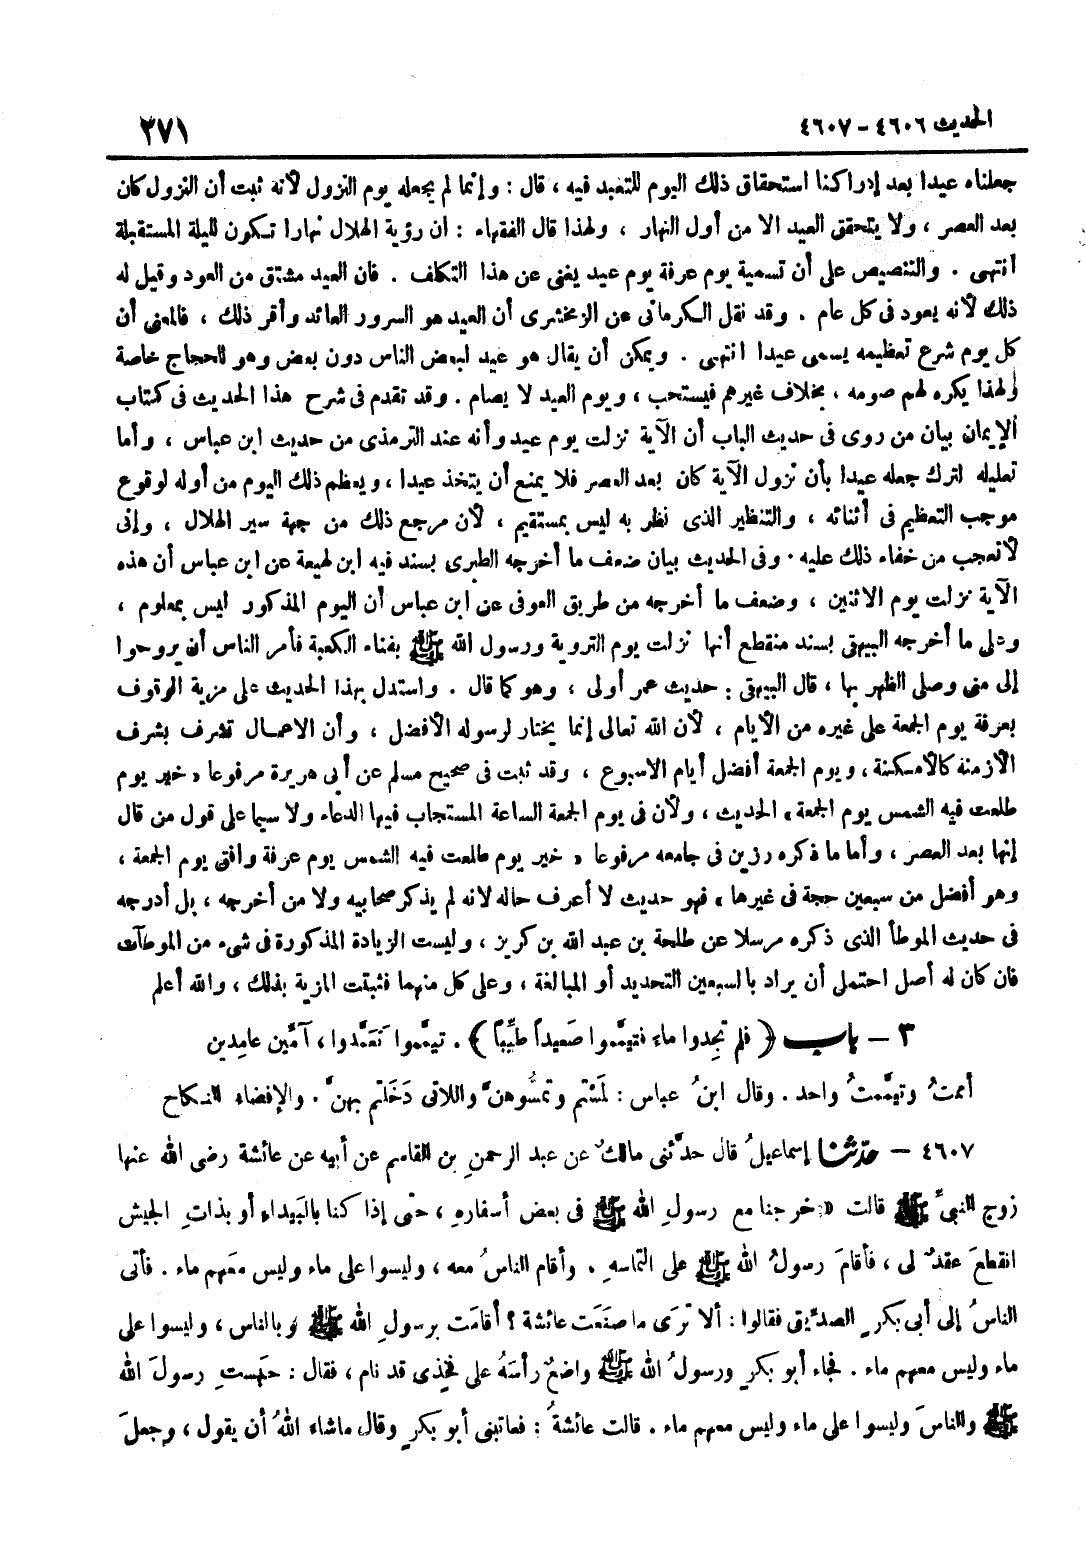 الحديث ٤٦٠٦ - ٤٦٠٧
٢٧١
جعلناه عيدا بعد إدراكنا استحقاق ذلك اليوم للتعبد فيه ، قال : وإنما لم يجعله يوم النزول لأنه ثبت أن النزول كان
بعد العصر ، ولا يتحقق العيد الا من أول النهار ، ولهذا قال الفقهاء : ان رؤية الهلال نهارا تكون لليلة المستقبلة
انتهى . والتنصيص على أن تسمية يوم عرفة يوم عيد يغنى عن هذا التكلف . فان العيد مشتق من العود وقيل له
ذلك لأنه يعود فى كل عام . وقد نقل الكرمانى عن الزمخشرى أن العيد هو السرور العائد وأقر ذلك ، فالمعنى أن
كل يوم شرع تعظيمه يسمى عيدا انتهى . ويمكن أن يقال هو عيد لبعض الناس دون بعض وهو للحجاج خاصة
ولهذا يكره لهم صومه ، بخلاف غيرهم فيستحب ، ويوم العيد لا يصام . وقد تقدم فى شرح هذا الحديث فى كتاب
الإيمان بيان من روى فى حديث الباب أن الآية نزلت يوم عيد وأنه عند الترمذى من حديث ابن عباس ، وأما
تعليله لترك جعله عيدا بأن نزول الآية كان بعد العصر فلا يمنع أن يتخذ عيدا ، ويعظم ذلك اليوم من أوله لوقوع
موجب التعظيم فى أثنائه ، والتنظير الذى نظر به ليس بمستقيم ، لأن مرجع ذلك من جهة سير الهلال ، وإنى
لأتعجب من خفاء ذلك عليه . وفى الحديث بيان ضعف ما أخرجه الطبرى بسند فيه ابن لهيعة عن ابن عباس أن هذه
الآية نزلت يوم الاثنين ، وضعف ما أخرجه من طريق العوفى عن ابن عباس أن اليوم المذكور ليس بمعلوم ،
وعلى ما أخرجه البيهقى بسند منقطع أنها نزلت يوم التروية ورسول الله ﷺ بفناء الكعبة فأمر الناس أن يروحوا
إلى منى وصلى الظهر بها ، قال البيهقى : حديث عمر أولى ، وهو كما قال . واستدل بهذا الحديث على مزية الوقوف
بعرفة يوم الجمعة على غيره من الأيام ، لأن الله تعالى إنما يختار لرسوله الأفضل ، وأن الاعمال تشرف بشرف
الأزمنه كالأمكنة ، ويوم الجمعة أفضل أيام الاسبوع ، وقد ثبت فى صحيح مسلم عن أبى هريرة مرفوعا « خير يوم
طلعت فيه الشمس يوم الجمعة » الحديث ، ولأن فى يوم الجمعة الساعة المستجاب فيها الدعاء ولا سيما على قول من قال
إنها بعد العصر ، وأما ما ذكره رزين فى جامعه مرفوعا « خير يوم طلعت فيه الشمس يوم عرفة وافق يوم الجمعة ،
وهو أفضل من سبعين حجة فى غيرها » فهو حديث لا أعرف حاله لانه لم يذكر صحابيه ولا من أخرجه ، بل أدرجه
فى حديث الموطأ الذى ذكره مرسلا عن طلحة بن عبد الله بن كريز ، وليست الزيادة المذكورة فى شىء من الموطآت
فان كان له أصل احتمل أن يراد بالسبعين التحديد أو المبالغة ، وعلى كل منهما فثبتت المزية بذلك ، والله أعلم
٣ - باب ( فلم تجِدوا ماء فتيمَّموا صَعيداً طيِّباً ) . تيمَّموا تَعَمَّدوا ، آمِّين عامِدين
أممتُ وتيمَّمتُ واحد . وقال ابنُ عباس : لمَسْتم وتمسُّوهنَّ واللاتى دَخَلتم بهنَّ . والإفضاء النكاح
٤٦٠٧ - حدّثنا إسماعيلُ قال حدَّثنى مالكٌ عن عبد الرحمنِ بن القاسم عن أبيه عن عائشة رضى الله عنها
زوج النبىِّ ﷺ قالت « خرجنا مع رسولِ الله ﷺ فى بعض أسفارهِ ، حتّى إذا كنا بالبَيداءِ أو بذاتِ الجيش
انقطعَ عقدٌ لى ، فأقامَ رسولُ الله ﷺ على التماسهِ . وأقام الناسُ معه ، وليسوا على ماء وليس معَهم ماء . فأتى
الناسُ إلى أبى بكرٍ الصدِّيق فقالوا : ألا ترَى ما صنَعَت عائشة ؟ أقامَت برسولِ الله ﷺ وبالناس ، وليسوا على
ماء وليس معهم ماء . فجاء أبو بكرٍ ورسولُ الله ﷺ واضعٌ رأسَهُ على فخِذى قد نام ، فقال : حبَستِ رسولَ الله
ﷺ والناسَ وليسوا على ماء وليس معهم ماء . قالت عائشةُ : فعاتبنى أبو بكرٍ وقال ماشاء اللهُ أن يقول ، وجعلَ